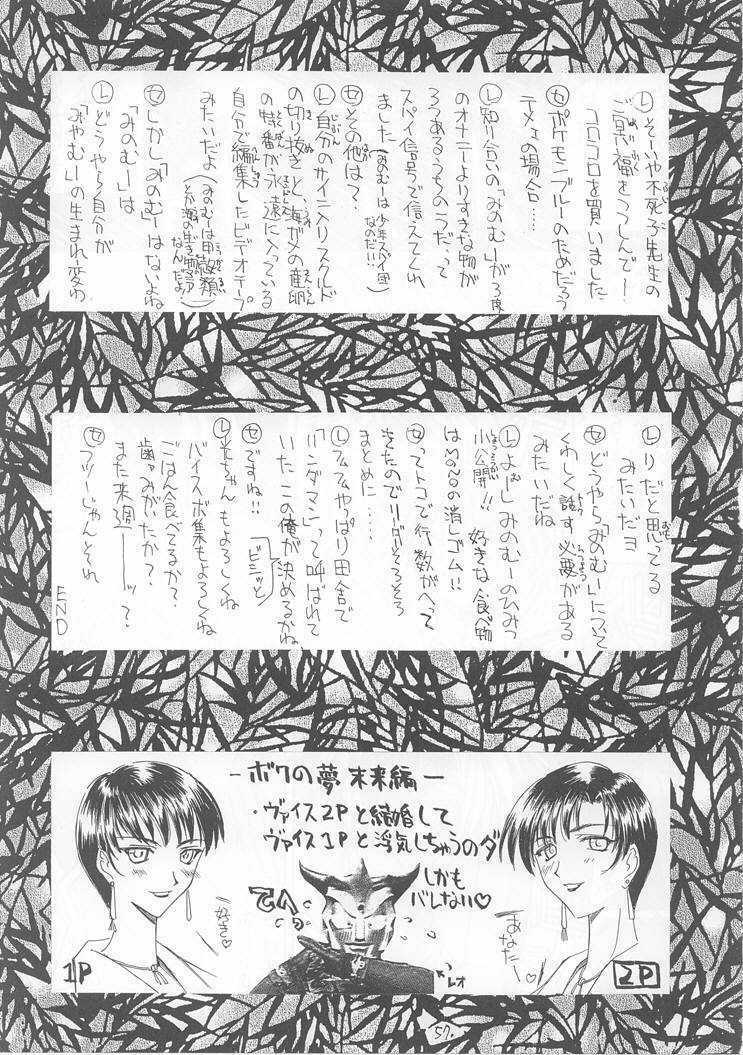 Ⓛそーいや不死子先生の
ご冥福をつつしんでー
コロコロを買いました
Ⓢポケモンブルーのためだろう
テメェの場合……
Ⓛ知り合いの「みのむー」が3度
のオナニーよりすきな物が
3つあるうちの1つだって
スパイ信号で伝えてくれ
ました(みのむーは少年スパイ団
なのだ!!)
Ⓢその他は?
Ⓛ自分のサイン入りスクルド
の切り抜きと、海ガメの産卵
の特番がう遠に入っている
自分で編集したビデオテープ
みたいだよ(みのむーは甲殻類
とか海の生き物系
なんだよ)
Ⓢしかし「みのむー」はないよね
「みのむー」は
Ⓛどうやら自分が
「みやむー」の生まれ変わ
Ⓛりだと思ってる
みたいだヨ
Ⓢどうやら「みのむー」について
くわしく話す必要がある
みたいだね
Ⓛよーし みのむーのひみつ
小公開!! 好きな食べ物
はMONOの消しゴム!!
Ⓢってトコで行数がへって
きたのでリーダーそろそろ
まとめに……
Ⓛフムフムやっぱり田舎で
「バンダマン」って呼ばれて
いた この俺が決めるがね
Ⓢですね!! ビシッと
Ⓛそちゃん もよろしくね
バイスボ集もよろしくね
ごはん食べてるか?
歯ァみがたか?
また来週ーーッ?
Ⓢフツーじゃんそれ
END
-ボクの夢 未来編-
・ヴァイス2Pと結婚して
ヴァイス1Pと浮気しちゃうのダ
しかも
バレない♡
好き♡
あなたー♡
レオ
1P
2P
57.